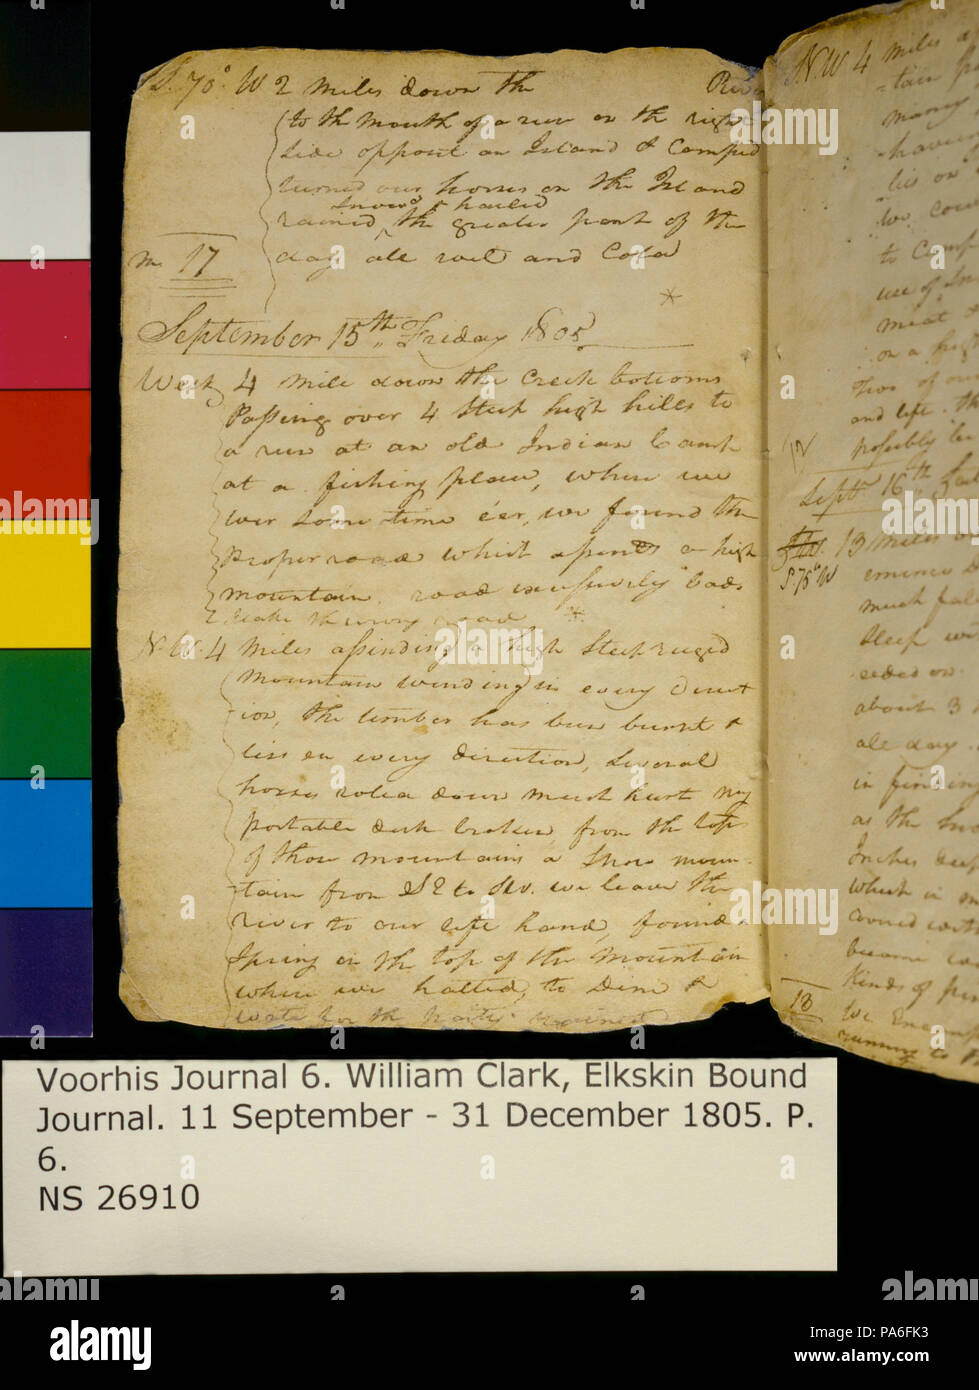 S. 70° W 2 miles down the River
to the mouth of a run on the right
Side opposit an Island & Camped
turned our horses on the Island
Snowed & hailed
rained ‸ the greater part of the
m 17
day all wet and Cold
September 15th Friday 1805
West 4 mile down the Creek bottoms
Passing over 4 Steep high hills to
a run at an old Indian Camp
at a fishing place, where we
wer Some time
we found the
proper road which assends a high
mountain road excessively bad
take the wrong road
N. W. 4 miles assending a high Steep ruged
Mountain winding in every direct
ion, the timber has been burnt &
lies in every direction, Several
horses roled down much hurt my
portable desk broken, from the top
of those mountains a Snow moun-
-tain from SE to SW. we leave the
river to our left hand, found a
Spring on the top of the Mountain
where we halted, to Dine &
wate for the party
N. W 4 miles
-tain
many
have
lies on
we cou
to Camp
use of Sn
meat
on a
Two of
and left
possibly be
12
Septr 16th
13 miles
S. 75° W
much fal
Steep
about 3
all day
in finding
as the Sno
Inches deep
which in
covered with
become
Kinds of p
13
We Encam
running to
Voorhis Journal 6. William Clark, Elkskin Bound
Journal. 11 September - 31 December 1805. P.
6.
NS 26910
alamy
Image ID: PA6FK3
www.alamy.com